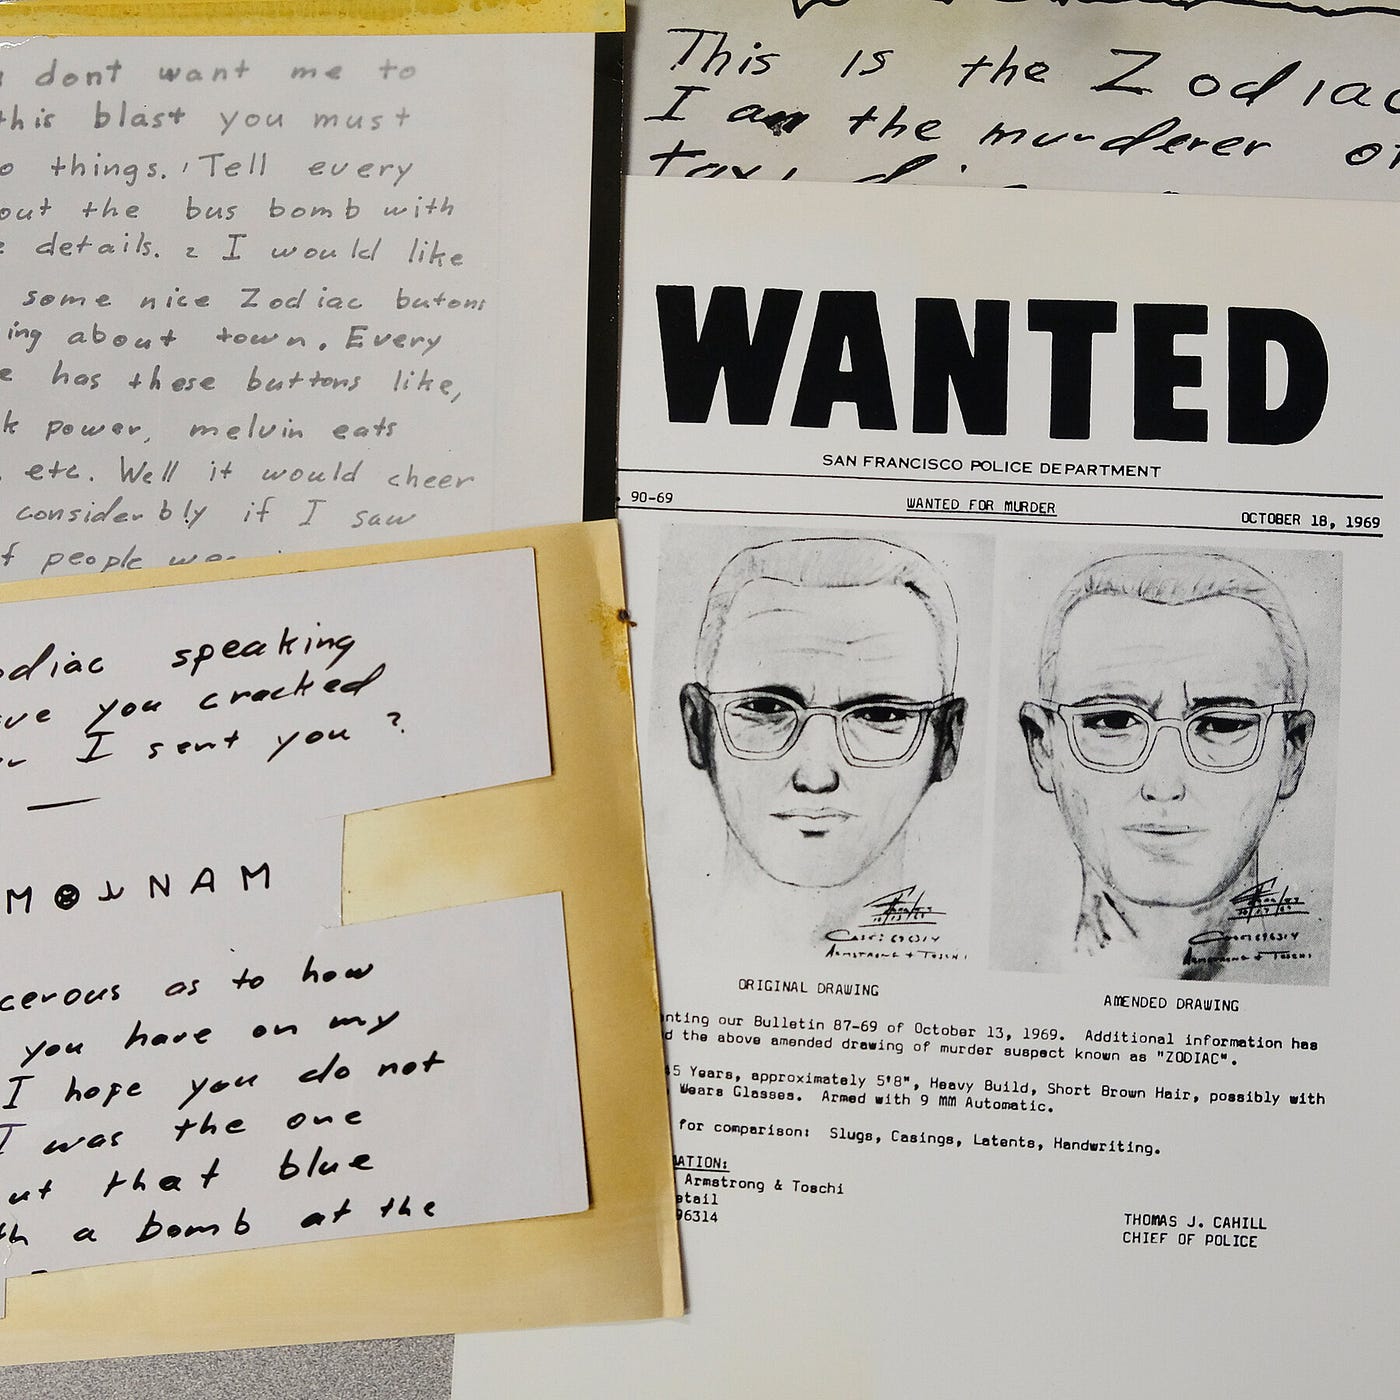 dont want me to
this blast you must
things. Tell every
out the bus bomb with
details. 2 I would like
some nice Zodiac butons
ing about town. Every
has these buttons like,
k power, melvin eats
etc. Well it would cheer
considerbly if I saw
people
This is the Zodiac
I am the murderer of
taxi
WANTED
SAN FRANCISCO POLICE DEPARTMENT
90-69 WANTED FOR MURDER OCTOBER 18, 1969
ORIGINAL DRAWING AMENDED DRAWING
nting our Bulletin 87-69 of October 13, 1969. Additional information has
d the above amended drawing of murder suspect known as "ZODIAC".
45 Years, approximately 5'8", Heavy Build, Short Brown Hair, possibly with
Wears Glasses. Armed with 9 MM Automatic.
for comparison: Slugs, Casings, Latents, Handwriting.
ATION:
Armstrong & Toschi
etail
96314
THOMAS J. CAHILL
CHIEF OF POLICE
odiac speaking
ave you cracked
I sent you ?
M NAM
cerous as to how
you have on my
I hope you do not
I was the one
ut that blue
th a bomb at the